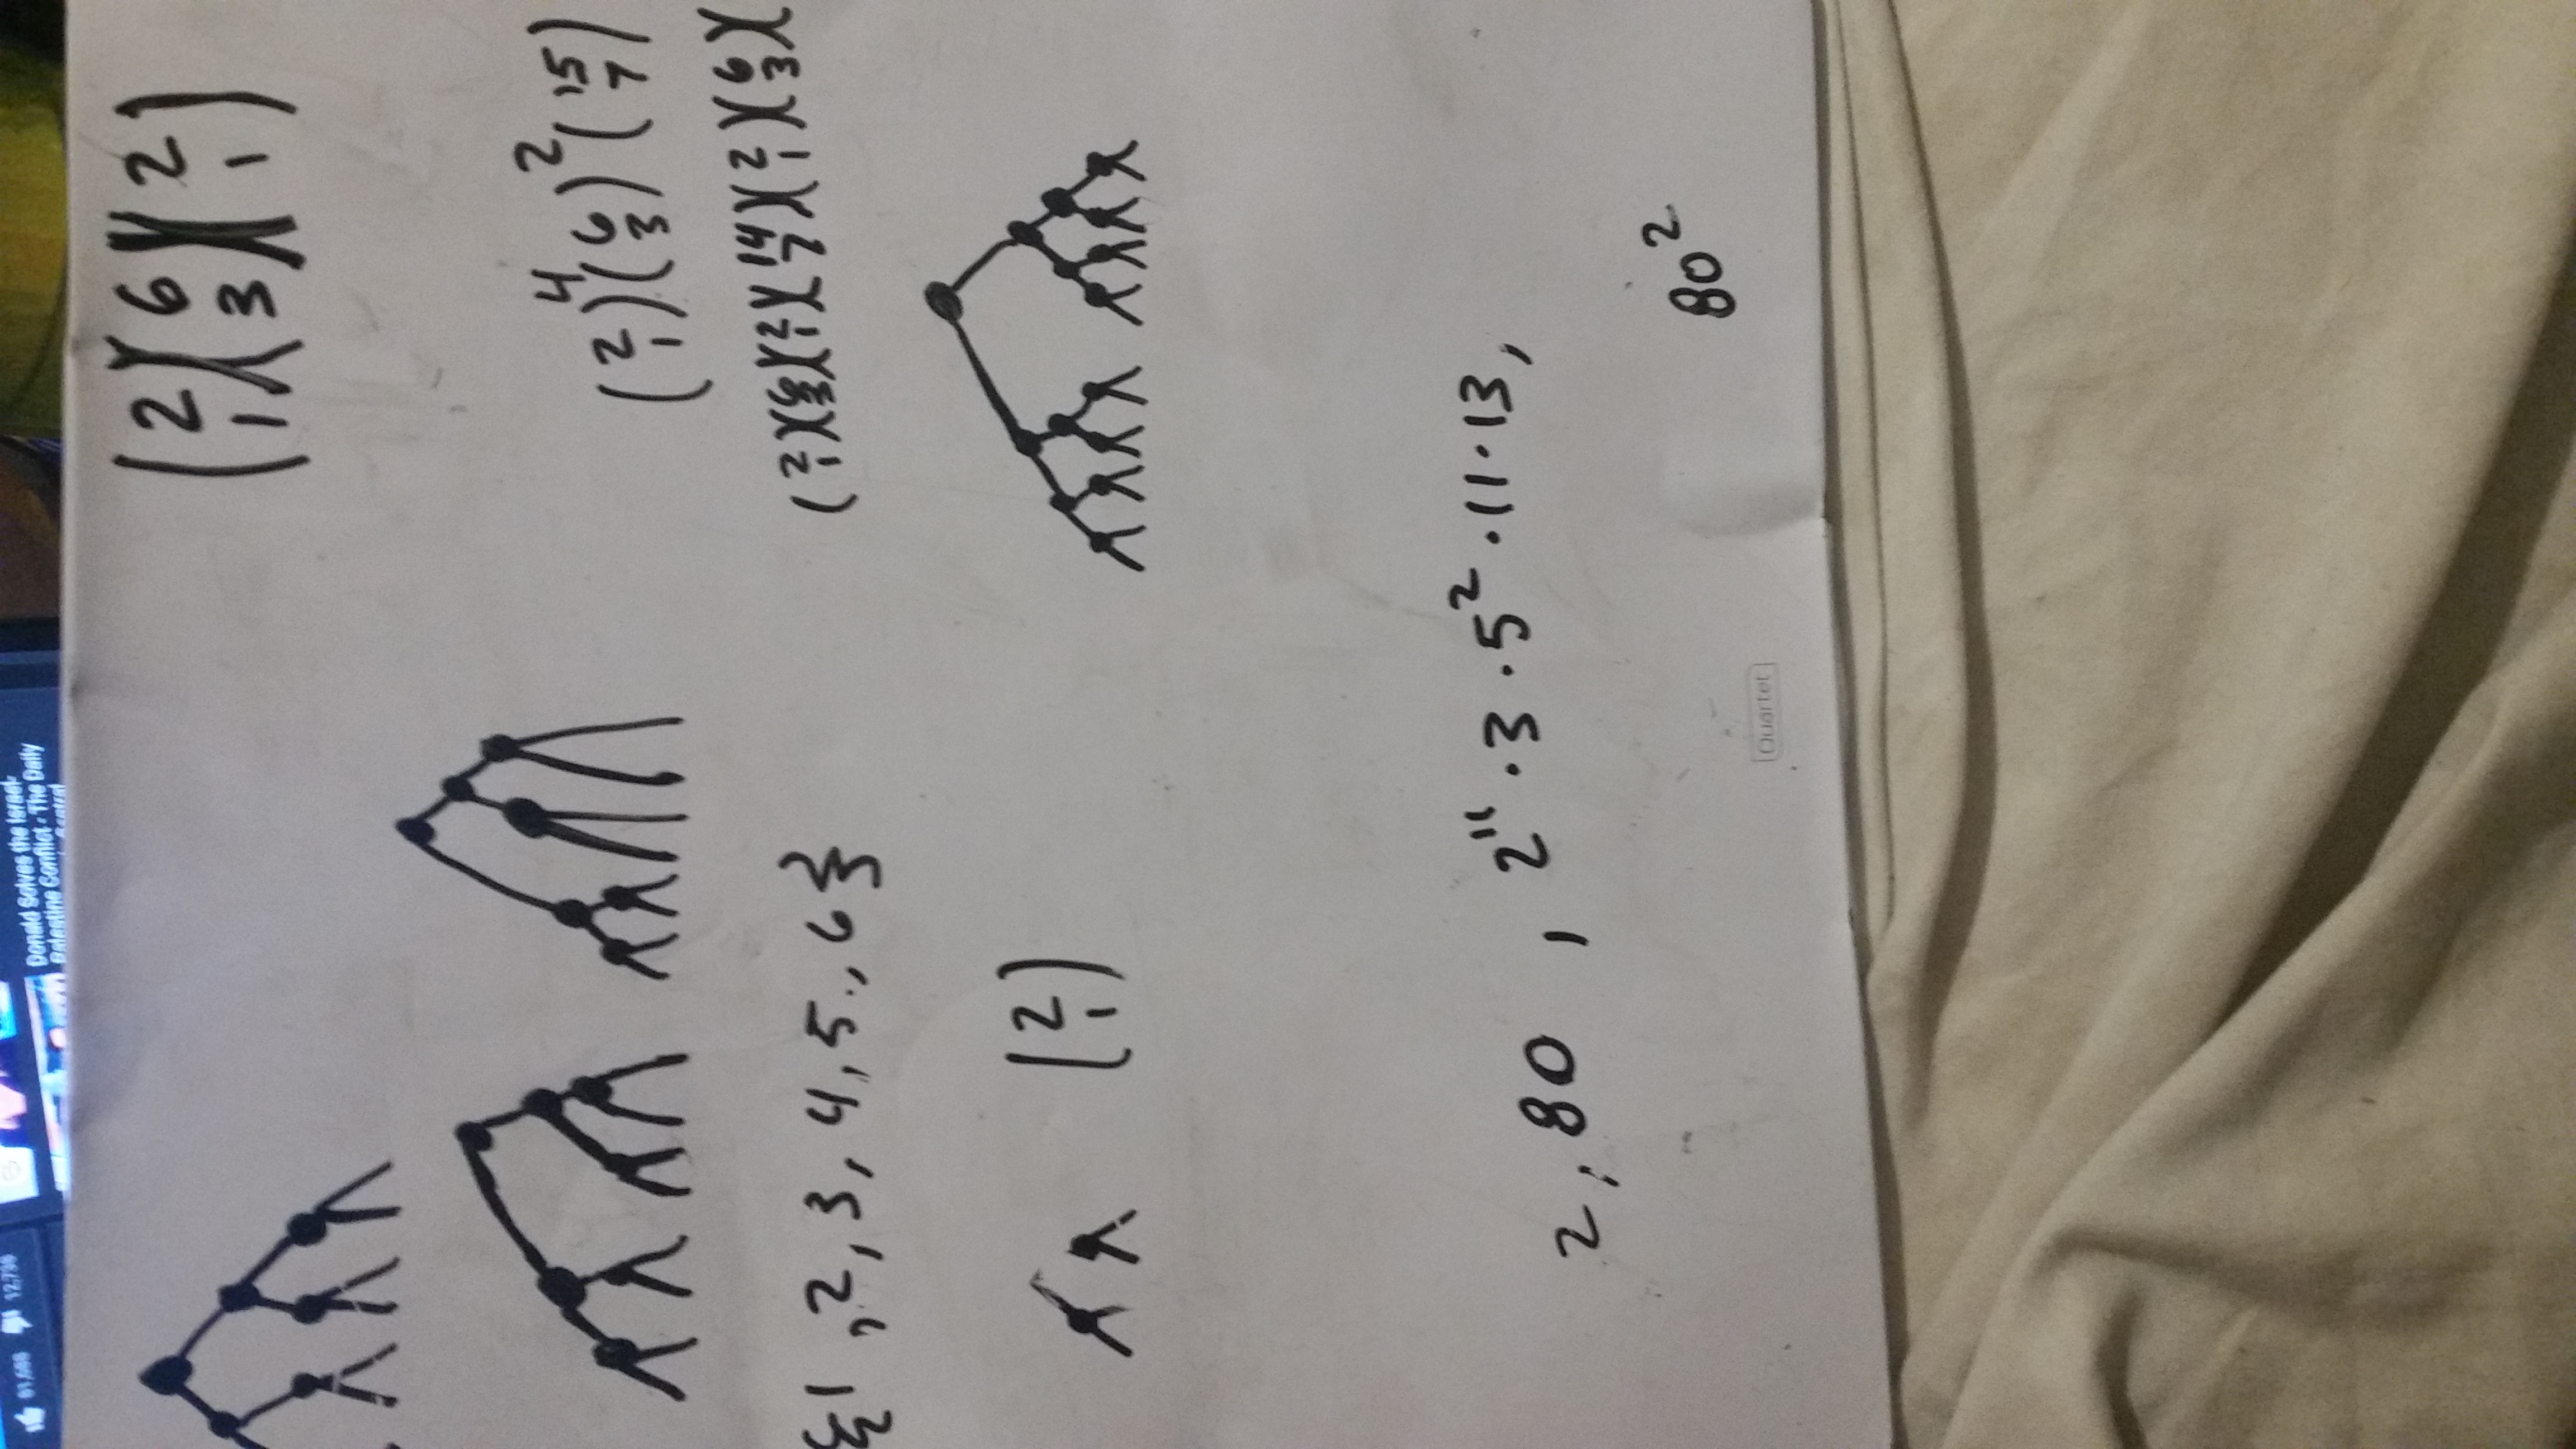 81,688 12,798
Donald Solves the Israel-
Palestine Conflict - The Daily
(2 1)(6 3)(2 1)
(2 1)^4(6 3)^2(15 7)
(2 1)(6 3)(2 1)(14 7)(2 1)(6 3)(
{1,2,3,4,5,6}
(2 1)
2, 80, 2^11·3·5^2·11·13,
80^2
Quartet